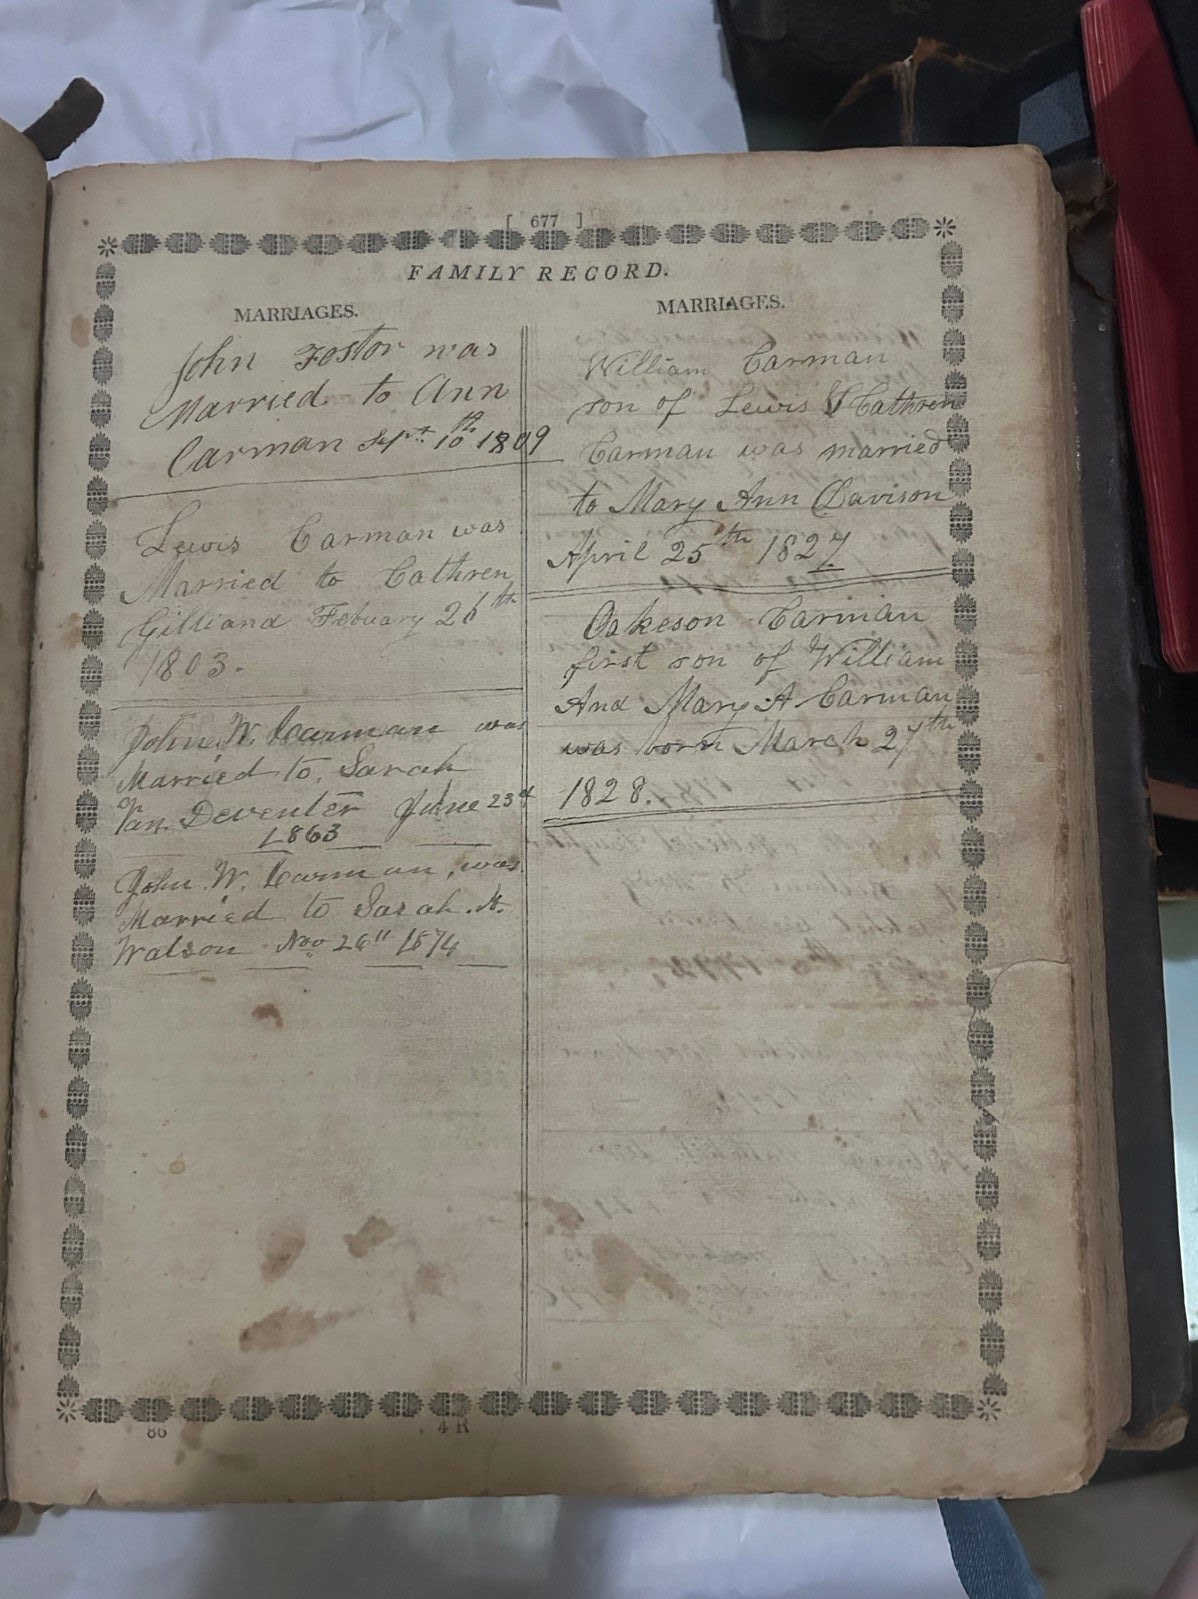 [ 677 ]
FAMILY RECORD.
MARRIAGES.
John Fostor was
Married to Ann
Carman Sept 10th 1809
Lewis Carman was
Married to Cathren
Gilliand Febuary 26th
1803.
John W. Carman was
Married to. Sarah
Van Deventer June 23d
1863
John W. Carman, was
Married to Sarah.
Watson Nov 26" 1874
MARRIAGES.
William Carman
son of Lewis & Cathren
Carman was married
to Mary Ann Davison
April 25th 1827
Oakeson Carman
first son of William
And Mary A Carman
was born March 27th
1828.
86
4 R